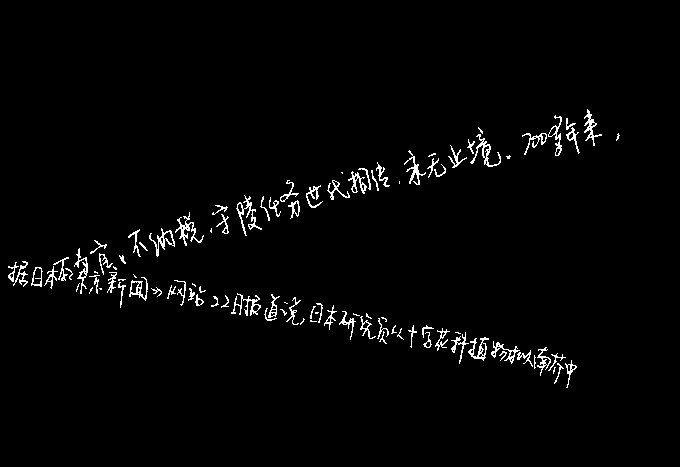 不为官、不纳税,守陵任务世代相传,永无止境。700多年来,
据日本《东京新闻》网站22日报道说,日本研究员从十字花科植物拟南芥中